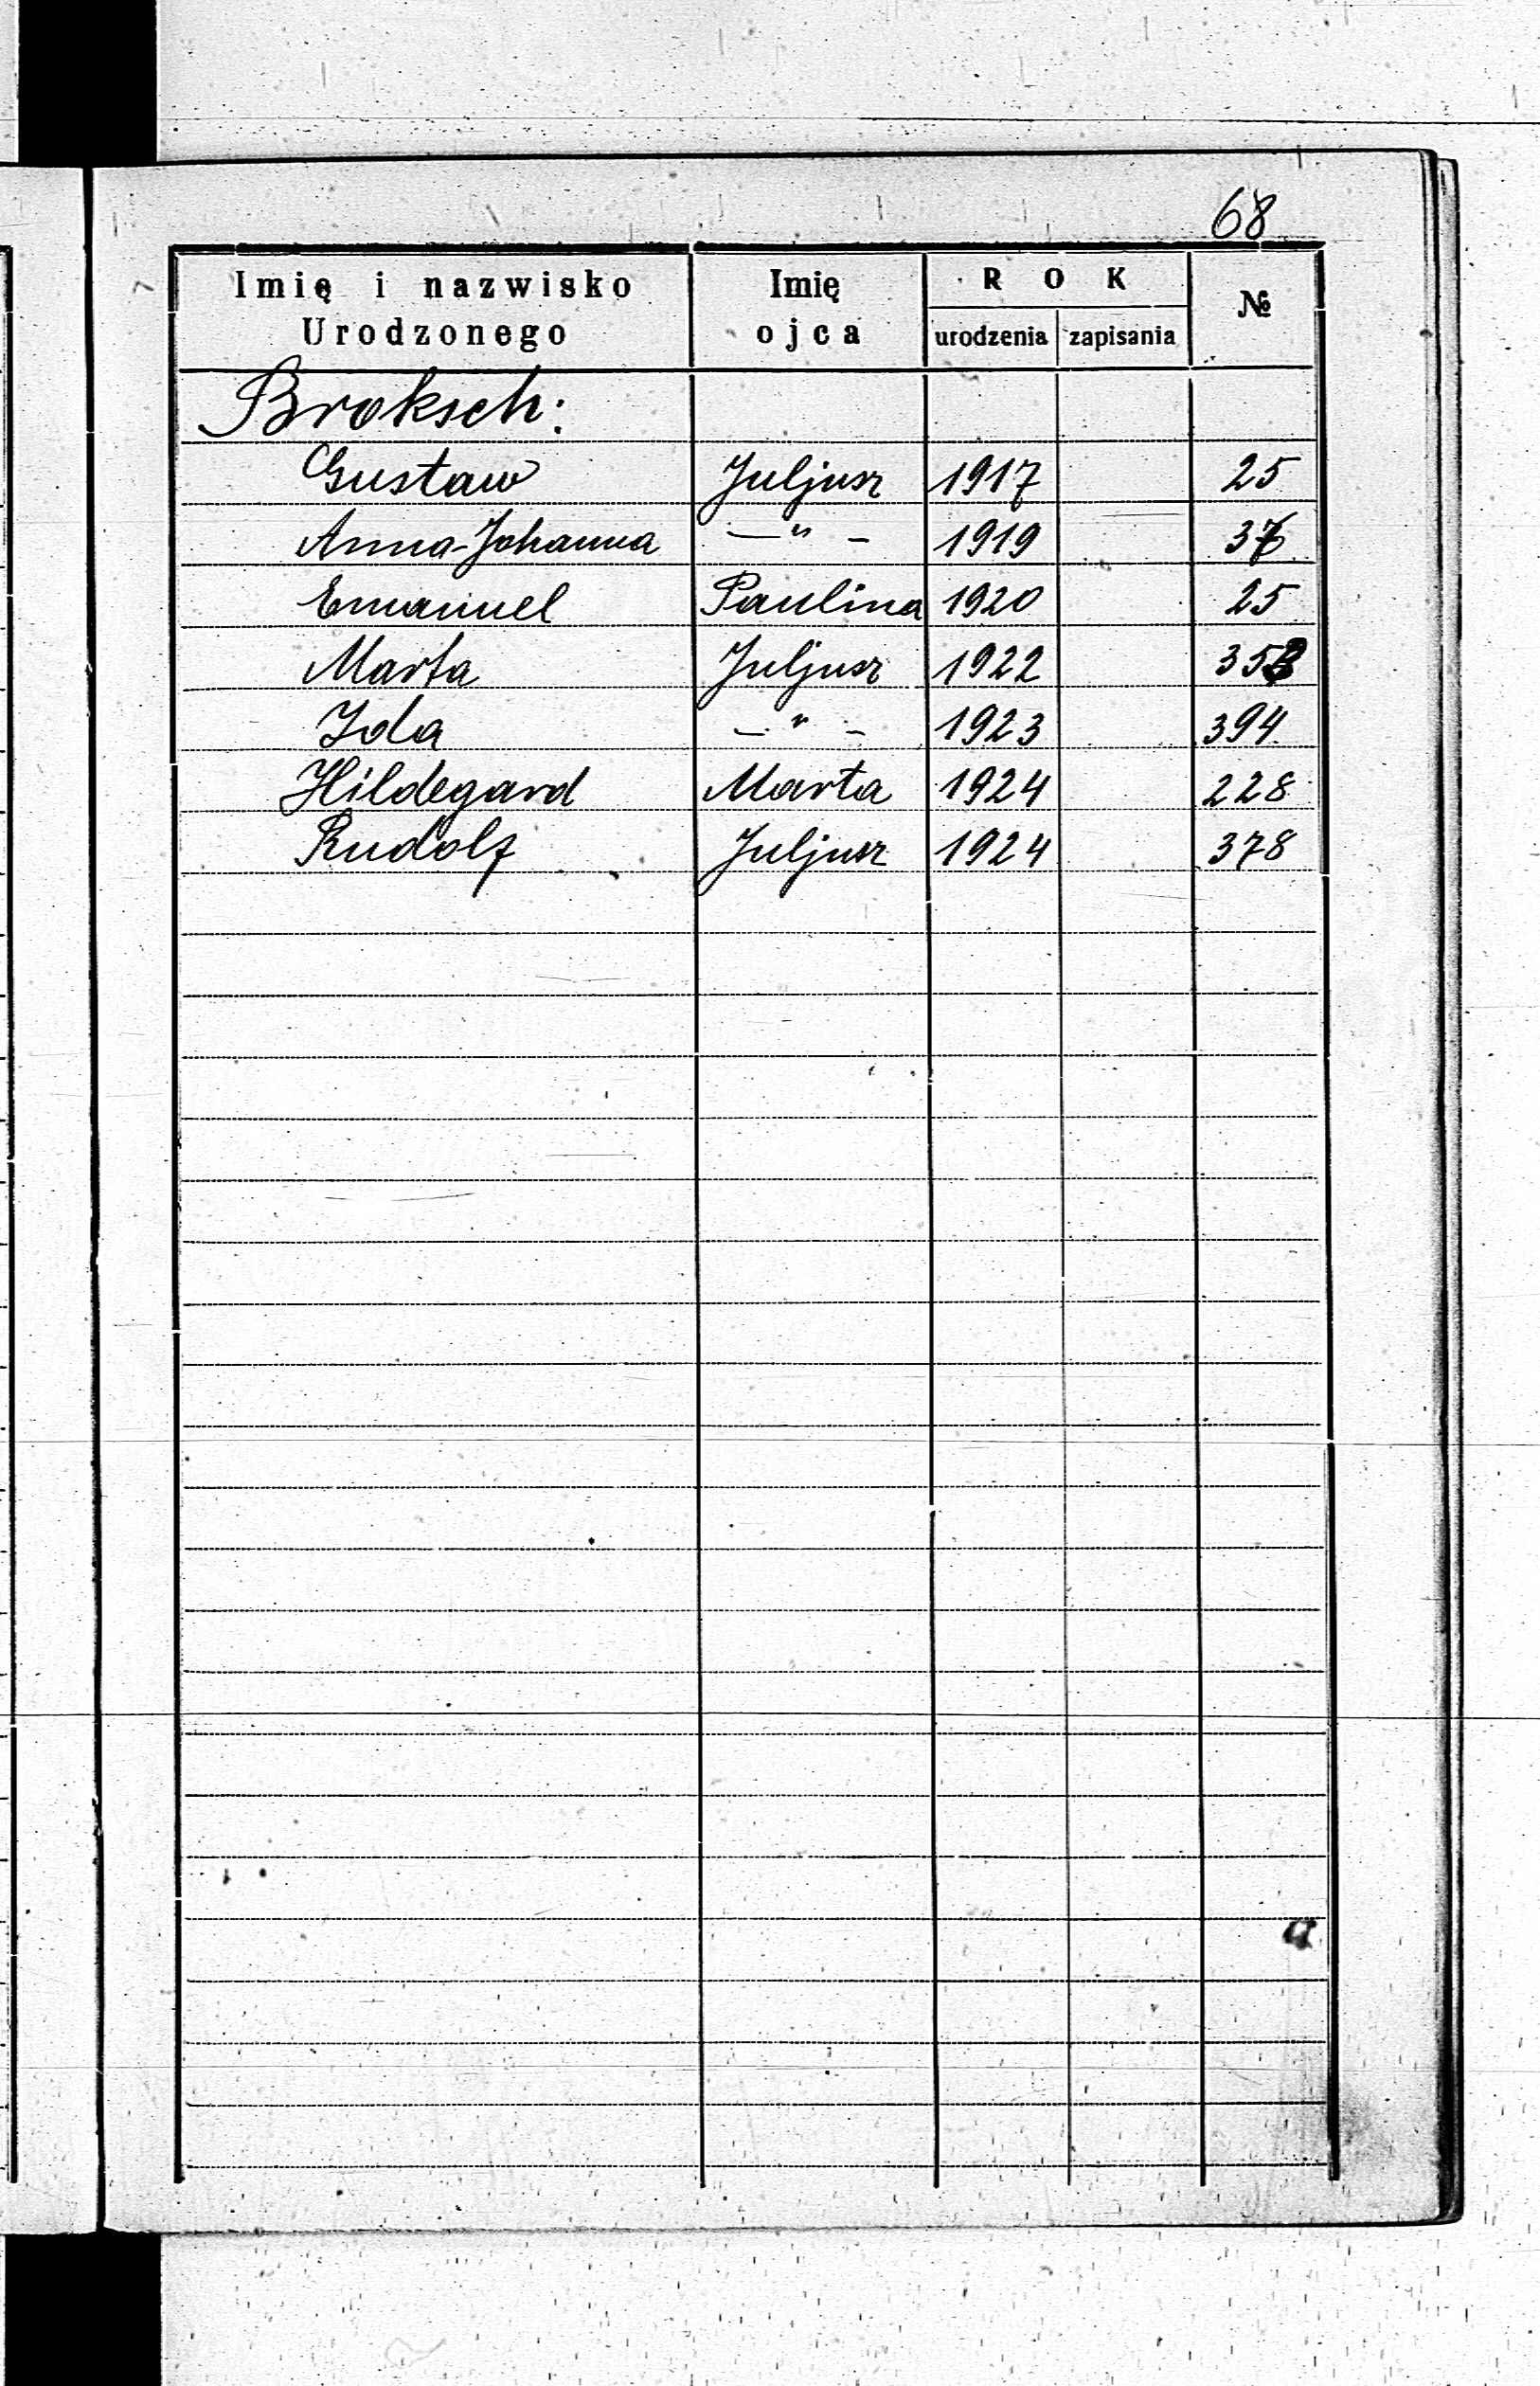 68
Imię i nazwisko Urodzonego Imię ojca ROK urodzenia zapisania №
Broksch:
Gustaw Juljusz 1917 25
Anna-Johanna —"— 1919
Emanuel Paulina 1920 25
Marta Juljusz 1922
Ida —"— 1923 394
Hildegard Marta 1924 228
Rudolf Juljusz 1924 378